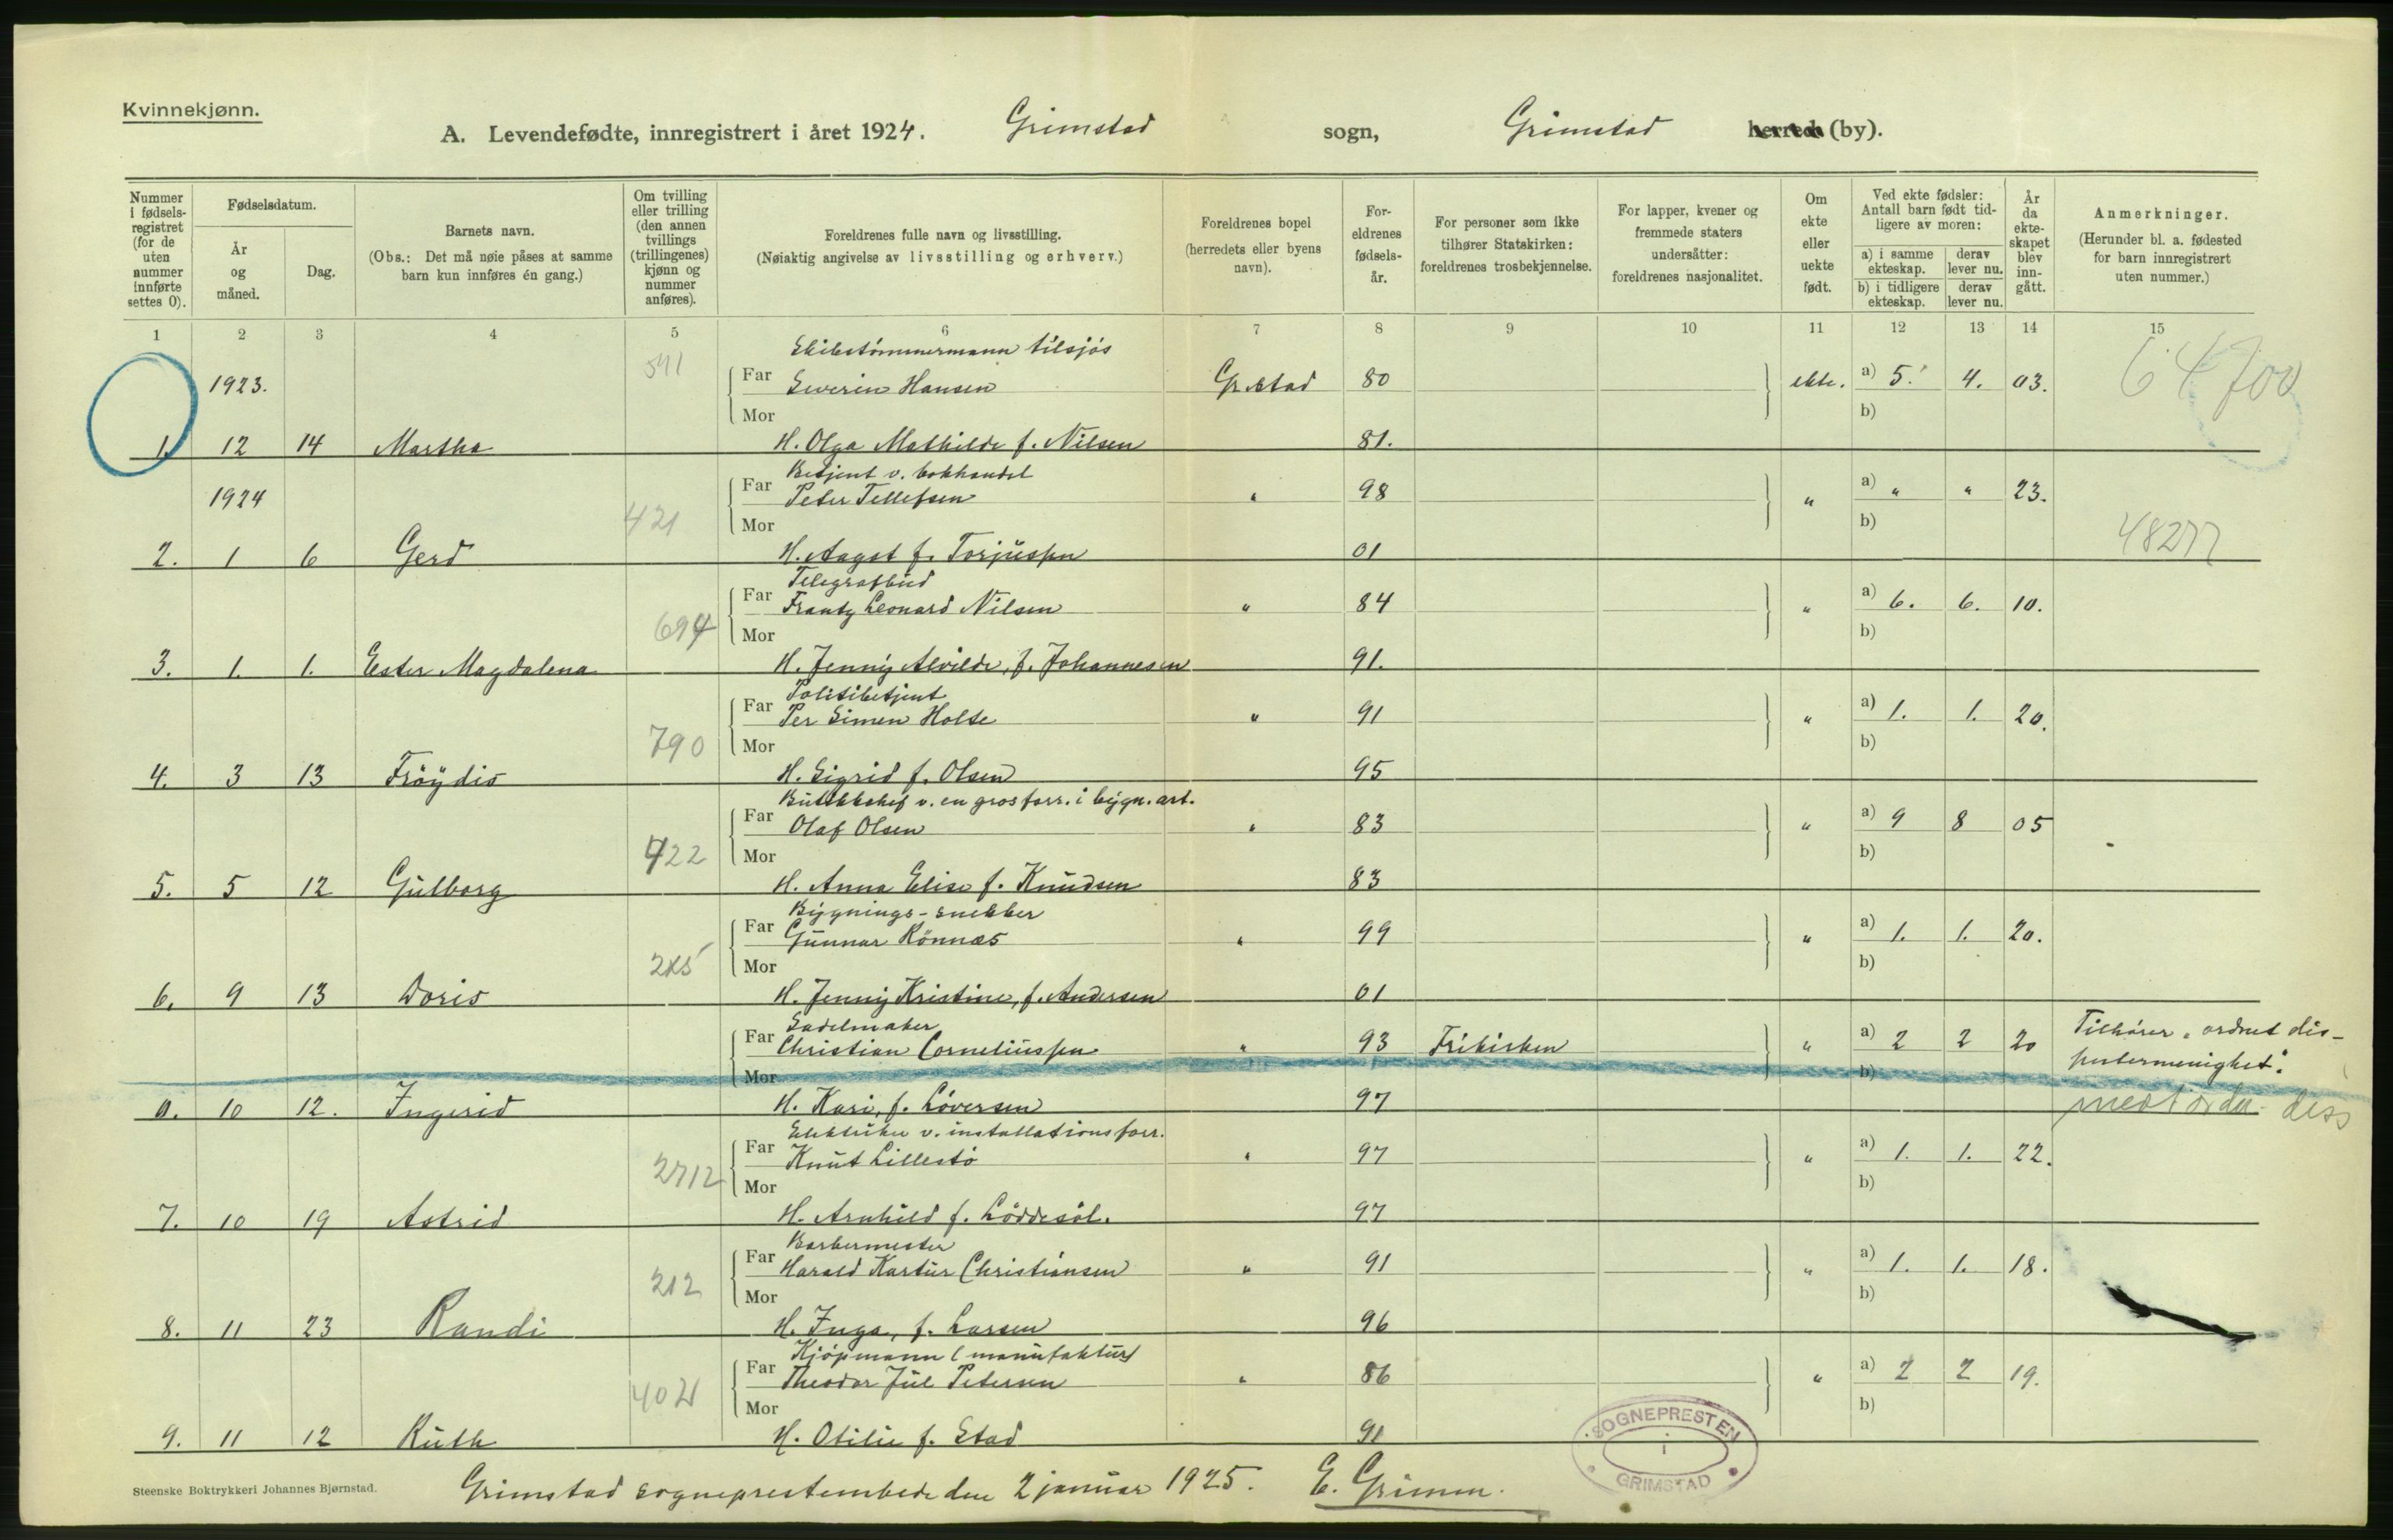 Kvinnekjønn.
A. Levendefødte, innregistrert i året 1924. Grimstad sogn, Grimstad herred (by).
Nummer i fødselsregistret (for de uten nummer innførte settes 0).
Fødselsdatum.
År og måned.
Dag.
Barnets navn.
(Obs.: Det må nøie påses at samme barn kun innføres én gang.)
Om tvilling eller trilling (den annen tvillings (trillingenes) kjønn og nummer anføres).
Foreldrenes fulle navn og livsstilling.
(Nøiaktig angivelse av livsstilling og erhverv.)
Foreldrenes bopel (herredets eller byens navn).
Foreldrenes fødselsår.
For personer som ikke tilhører Statskirken: foreldrenes trosbekjennelse.
For lapper, kvener og fremmede staters undersåtter: foreldrenes nasjonalitet.
Om ekte eller uekte født.
Ved ekte fødsler: Antall barn født tidligere av moren:
a) i samme ekteskap. derav lever nu.
b) i tidligere ekteskap. derav lever nu.
År da ekteskapet blev inngått.
Anmerkninger.
(Herunder bl. a. fødested for barn innregistrert uten nummer.)
1 2 3 4 5 6 7 8 9 10 11 12 13 14 15
Skibstømmermann tilsjøs
1923. 541 Far Severin Hansen Gr.stad 80 ekte. a) 5. 4. 03.
Mor b)
1. 12 14 Martha H. Olga Mathilde f. Nilsen 81.
Betjent v. bokhandel
1924 421 Far Peter Tellefsen " 98 " a) " " 23.
Mor b) 48277
2. 1 6 Gerd H. Aagot f. Torjussen 01
Telegrafbud
694 Far Frantz Leonard Nilsen " 84 " a) 6. 6. 10.
Mor b)
3. 1. 1. Ester Magdalena H. Jenny Alvilde, f. Johannesen 91.
Politibetjent
790 Far Per Simen Holte " 91 " a) 1. 1. 20.
Mor b)
4. 3 13 Frøydis H. Sigrid f. Olsen 95
Butikkchef v. en gros forr. i bygn. art.
422 Far Olaf Olsen " 83 " a) 9 8 05
Mor b)
5. 5 12 Gulborg H. Anna Elise f. Knudsen 83
Bygnings-snekker
Far Gunnar Rønnes " 99 " a) 1. 1. 20.
Mor b)
6. 9 13 Doris H. Jenny Kristine, f. Andersen 01
Sadelmaker
Far Christian Corneliussen " 93 Frikirken " a) 2 2 20 Tilhører "ordnet dis-
Mor b) sentermenighet".
0. 10 12. Ingerid H. Kari, f. Løversen 97
Elektriker v. installationsforr.
2712 Far Knut Lillestø " 97 " a) 1. 1. 22.
Mor b)
7. 10 19 Astrid H. Arnhild f. Løddesøl. 97
Barbermester
212 Far Harald Kartur Christiansen " 91 " a) 1. 1. 18.
Mor b)
8. 11 23 Randi H. Inga, f. Larsen 96
Kjøpmann (manufaktur)
Far Theodor Jul Petersen " 86 " a) 2 2 19.
Mor b)
9. 11 12 Ruth H. Otilie f. Stad 91
SOGNEPRESTEN i GRIMSTAD
Steenske Boktrykkeri Johannes Bjørnstad.
Grimstad sogneprestembede den 2 januar 1925. E. Grimm.